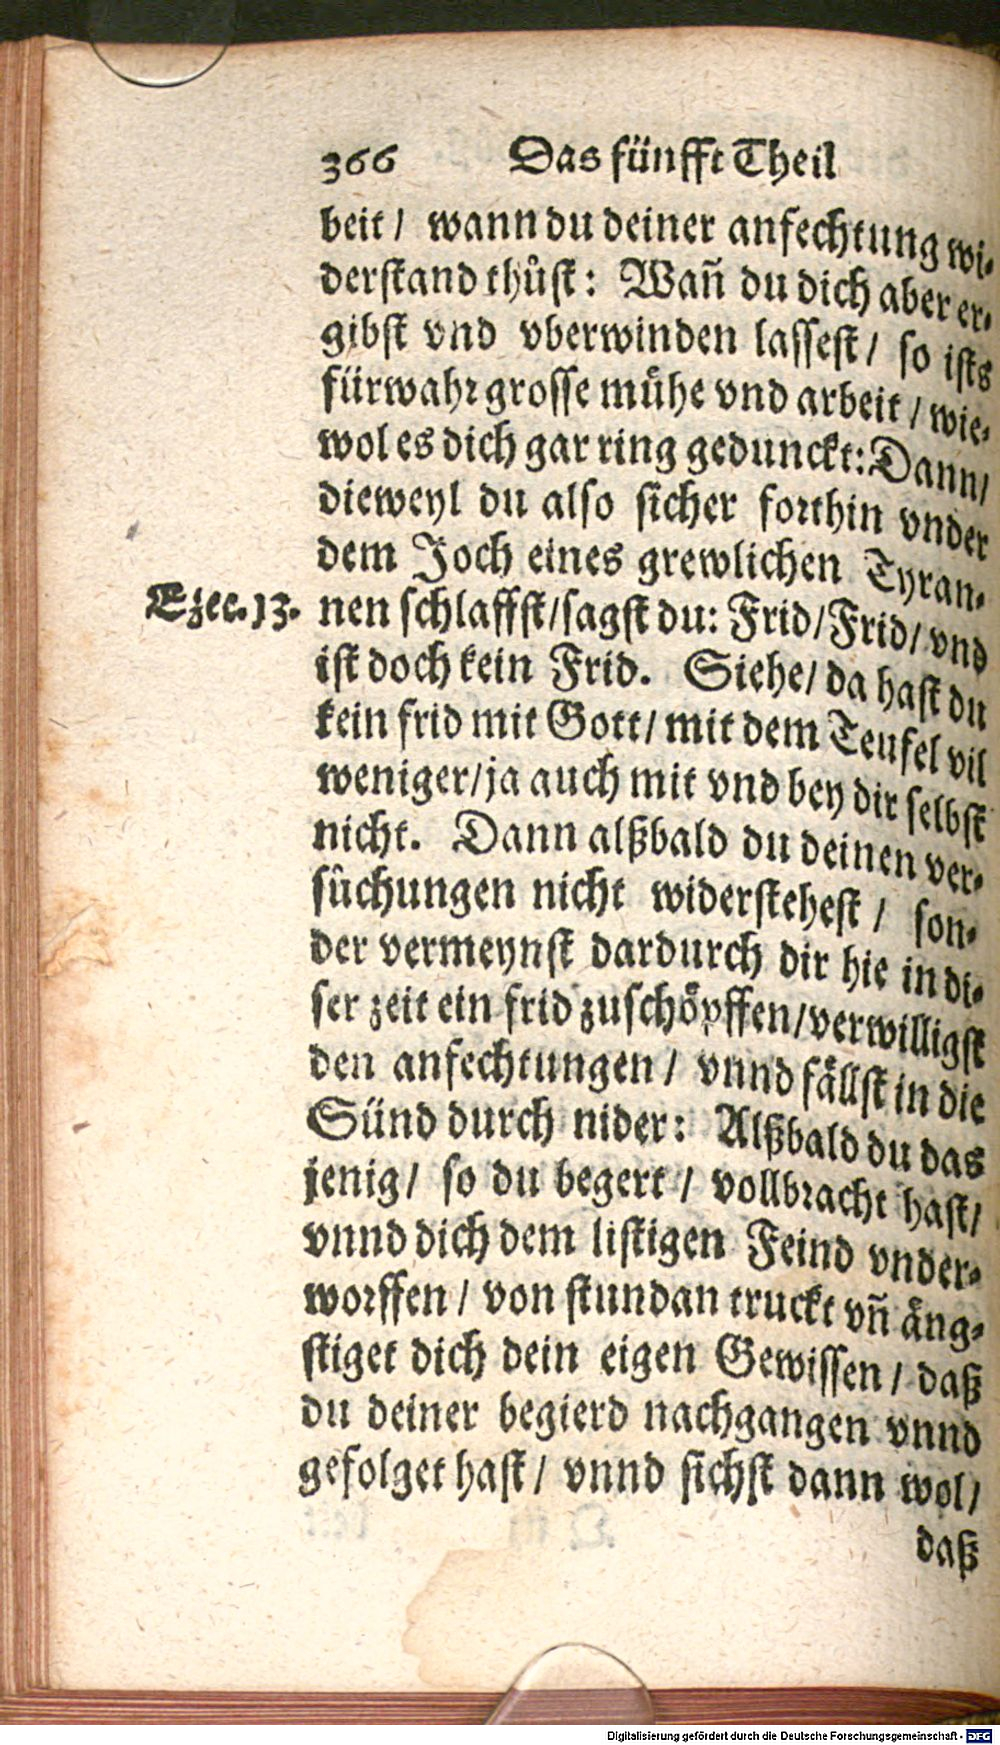 366 Das fünfft Theil
beit / wann du deiner anfechtung wi-
derstand thůst: Wañ du dich aber er-
gibst vnd vberwinden lassest / so ists
fürwahr grosse mühe vnd arbeit / wie-
wol es dich gar ring gedunckt: Dann /
dieweyl du also sicher forthin vnder
dem Joch eines grewlichen Tyran-
Ezec. 13. nen schlaffst / sagst du: Frid / Frid / vnd
ist doch kein Frid. Siehe / da hast du
kein frid mit Gott / mit dem Teufel vil
weniger / ja auch mit vnd bey dir selbst
nicht. Dann alßbald du deinen ver-
sůchungen nicht widerstehest / son-
der vermeynst dardurch dir hie in di-
ser zeit ein frid zuschöpffen / verwilligst
den anfechtungen / vnnd fällst in die
Sünd durch nider: Alßbald du das
jenig / so du begert / vollbracht hast /
vnnd dich dem listigen Feind vnder-
worffen / von stundan truckt vñ äng-
stiget dich dein eigen Gewissen / daß
du deiner begierd nachgangen vnnd
gefolget hast / vnnd sichst dann wol /
daß
Digitalisierung gefördert durch die Deutsche Forschungsgemeinschaft - DFG